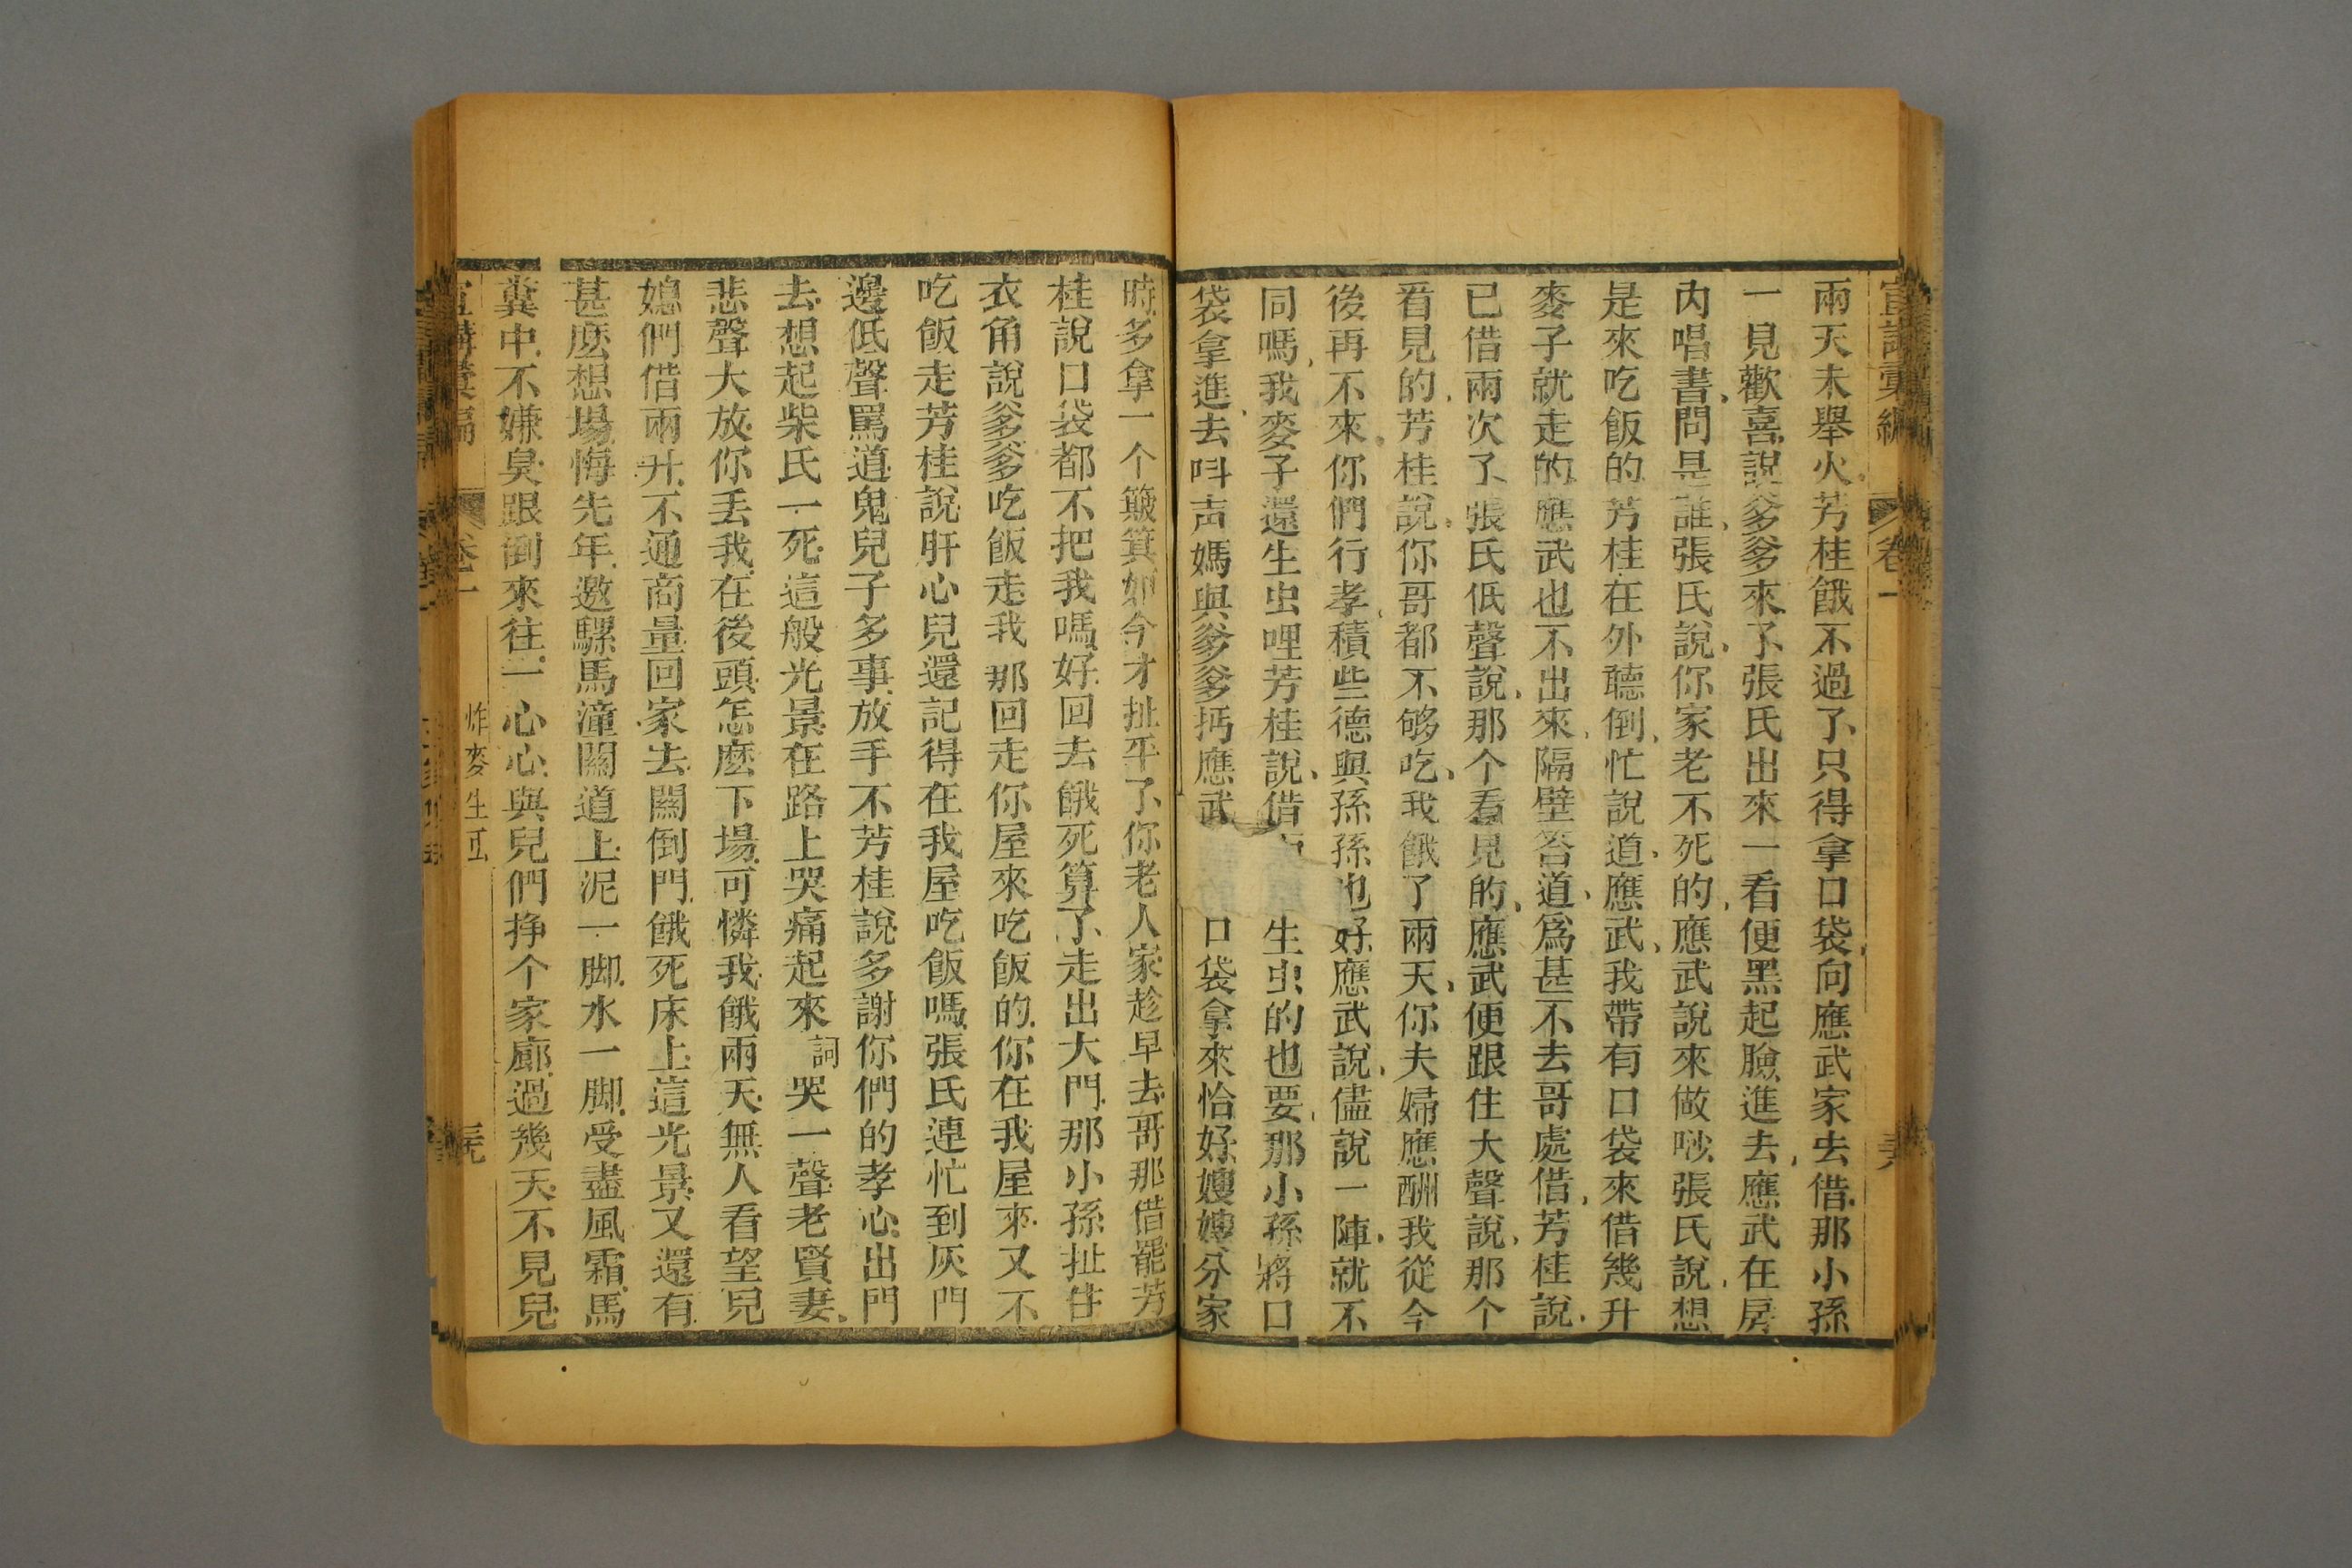 宣講彙編 卷一
兩天未舉火芳桂餓不過了只得拿口袋向應武家去借那小孫
一見歡喜說爹爹來了張氏出來一看便黑起臉進去應武在房
內唱書問是誰張氏說你家老不死的應武說來做㖇張氏說想
是來吃飯的芳桂在外聽倒忙說道應武我帶有口袋來借幾升
麥子就走的應武也不出來隔壁答道爲甚不去哥處借芳桂說
已借兩次了張氏低聲說那个看見的應武便跟住大聲說那个
看見的芳桂說你哥都不够吃我餓了兩天你夫婦應酬我從今
後再不來你們行孝積些德與孫孫也好應武說儘說一陣就不
同嗎我麥子還生虫哩芳桂說借 生虫的也要那小孫將口
袋拿進去呌声媽與爹爹抅應武 口袋拿來恰好嫂嫂分家
時多拿一个簸箕如今才扯平了你老人家趁早去哥那借罷芳
桂說口袋都不把我嗎好回去餓死算了走出大門那小孫扯住
衣角說爹爹吃飯走我那回走你屋來吃飯的你在我屋來又不
吃飯走芳桂說肝心兒還記得在我屋吃飯嗎張氏連忙到灰門
邊低聲罵道鬼兒子多事放手不芳桂說多謝你們的孝心出門
去想起柴氏一死這般光景在路上哭痛起來詞哭一聲老賢妻
悲聲大放你丢我在後頭怎麽下場可憐我餓兩天無人看望兒
媳們借兩升不通商量回家去關倒門餓死床上這光景又還有
甚麽想場悔先年邀騾馬潼關道上泥一脚水一脚受盡風霜馬
糞中不嫌臭跟倒來往一心心與兒們挣个家廊過幾天不見兒
宣講彙編 卷一 炸麥生虫